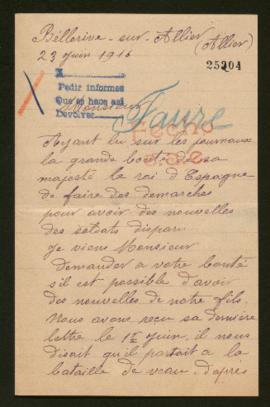 Bellerive-sur-Allier
(Allier)
23 Juin 1916
25904
A
Pedir informes
Que se hace así
Devolver
Monsieur
Faure
Ayant lu sur les journaux
la grande bonté de sa
majesté le roi d'Espagne
de faire des demarches
pour avoir des nouvelles
des soldats disparu
Je viens Monsieur
Demander a votre bonté
s'il est possible d'avoir
des nouvelles de notre fils.
Nous avons reçu sa dernière
lettre le 1er Juin, il nous
disait qu'il partait a la
bataille de Vaux, d'après